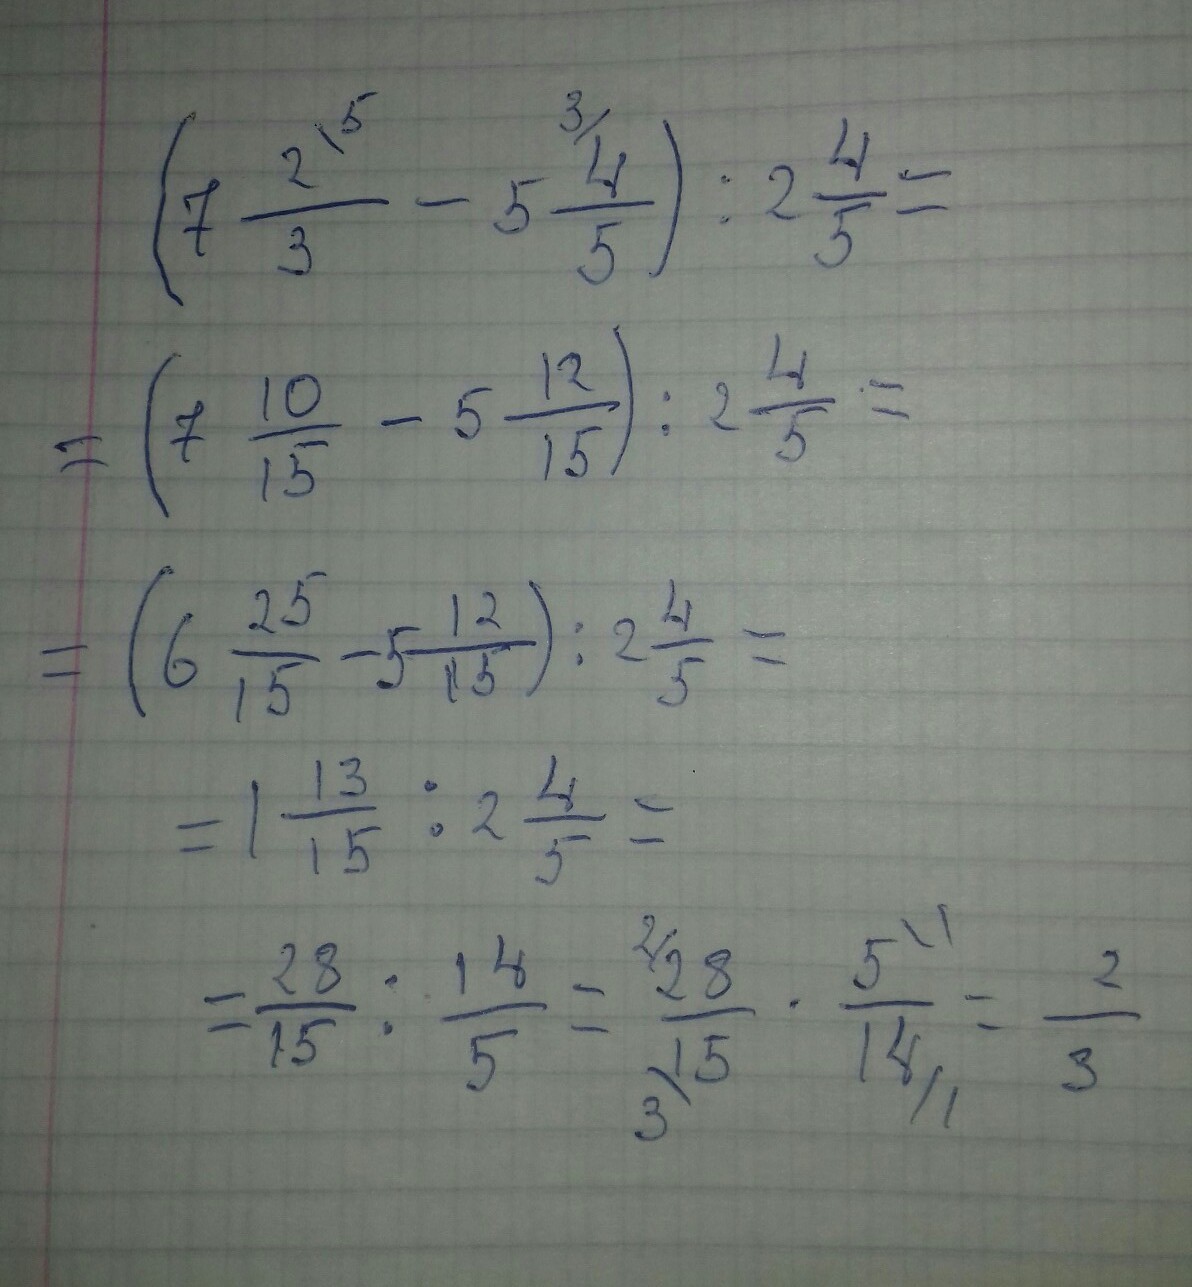 (7 2/3 \5 − 5 3/ 4/5) : 2 4/5 =
= (7 10/15 − 5 12/15) : 2 4/5 =
= (6 25/15 − 5 12/15) : 2 4/5 =
= 1 13/15 : 2 4/5 =
= 28/15 : 14/5 = 2/ 28/15 3\ · 5/14 \1 /1 = 2/3